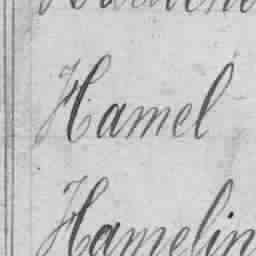 Hamel
Hamelin